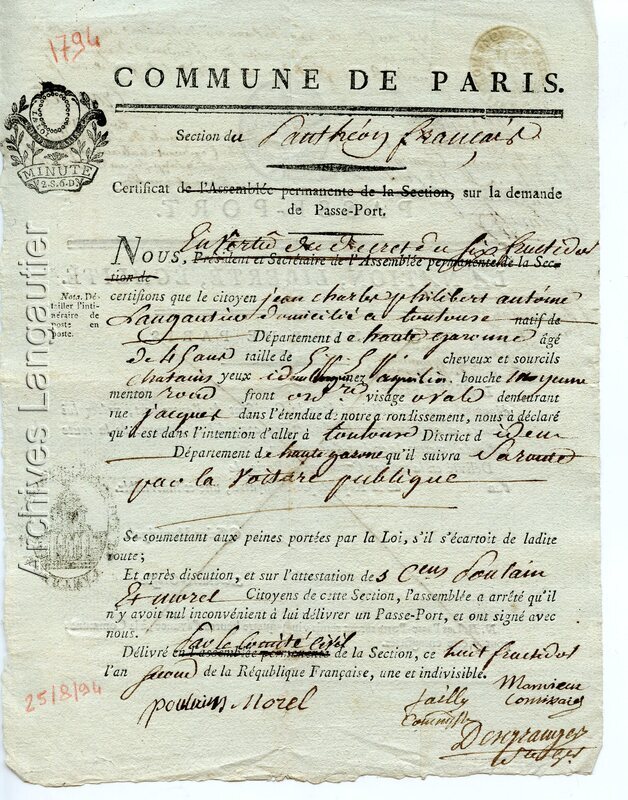 1794
COMMUNE DE PARIS.
MINUTE
2.S.6.D
Section du Panthéon français
Certificat de l'Assemblée permanente de la Section, sur la demande
de Passe-Port.
En vertu du décret du six fructidor
NOUS, Président et Secrétaire de l'Assemblée permanente de la Sec-
tion de
Nota. Dé-
tailler l'inti-
néraire de
poste en
poste.
certifions que le citoyen jean charles philibert antoine
Langautier domicilié a toulouse natif de
Département de haute garonne âgé
de 41 ans taille de cheveux et sourcils
chatains yeux idem nez aquilin bouche moyenne
menton rond front ord.re visage ovale demeurant
rue jacques dans l'étendue de notre arondissement, nous à déclaré
qu'il est dans l'intention d'aller à toulouse District d idem
Département de haute garone qu'il suivra sa route
par la voiture publique
Se soumettant aux peines portées par la Loi, s'il s'écartoit de ladite
route;
Et après discution, et sur l'attestation des Cens Poulain
Et morel Citoyens de cette Section, l'assemblée a arrêté qu'il
n'y avoit nul inconvénient à lui délivrer un Passe-Port, et ont signé avec
nous.
par le comité civil
Délivré en l'assemblée permanente de la Section, ce huit fructidor
l'an second de la République Française, une et indivisible.
poulain Morel
Jailly
Commissaire
Desgranges
25/8/94
Archives Langautier